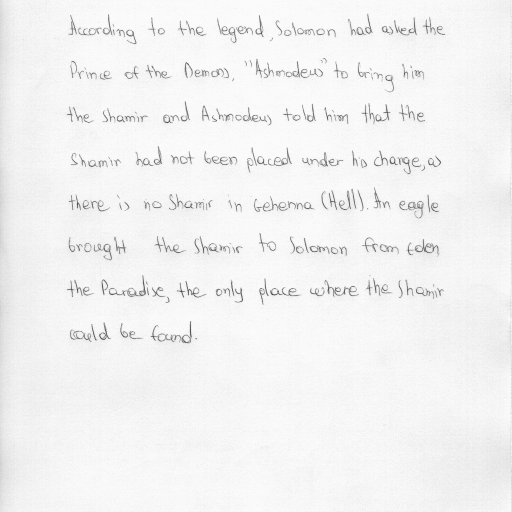 According to the legend, Solomon had asked the
Prince of the Demons, "Ashmodeus" to bring him
the shamir and Ashmodeus told him that the
Shamir had not been placed under his charge, as
there is no Shamir in Gehenna (Hell). An eagle
brought the Shamir to Solomon from Eden
the Paradise, the only place where the Shamir
could be found.